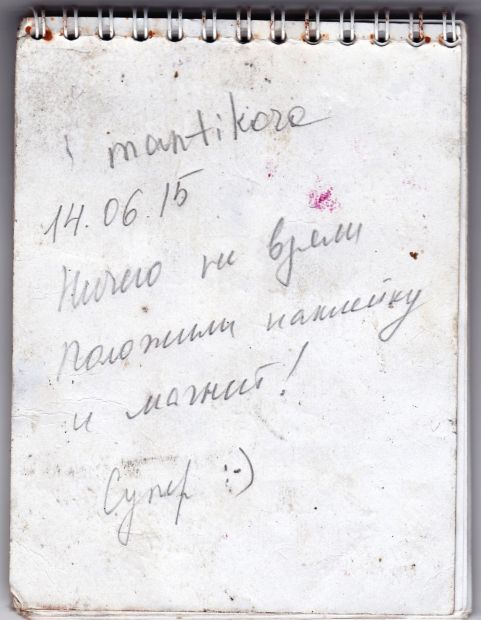 mantikora
14.06.15
Ничего не взяли
положили наклейку
и магнит!
Супер :-)